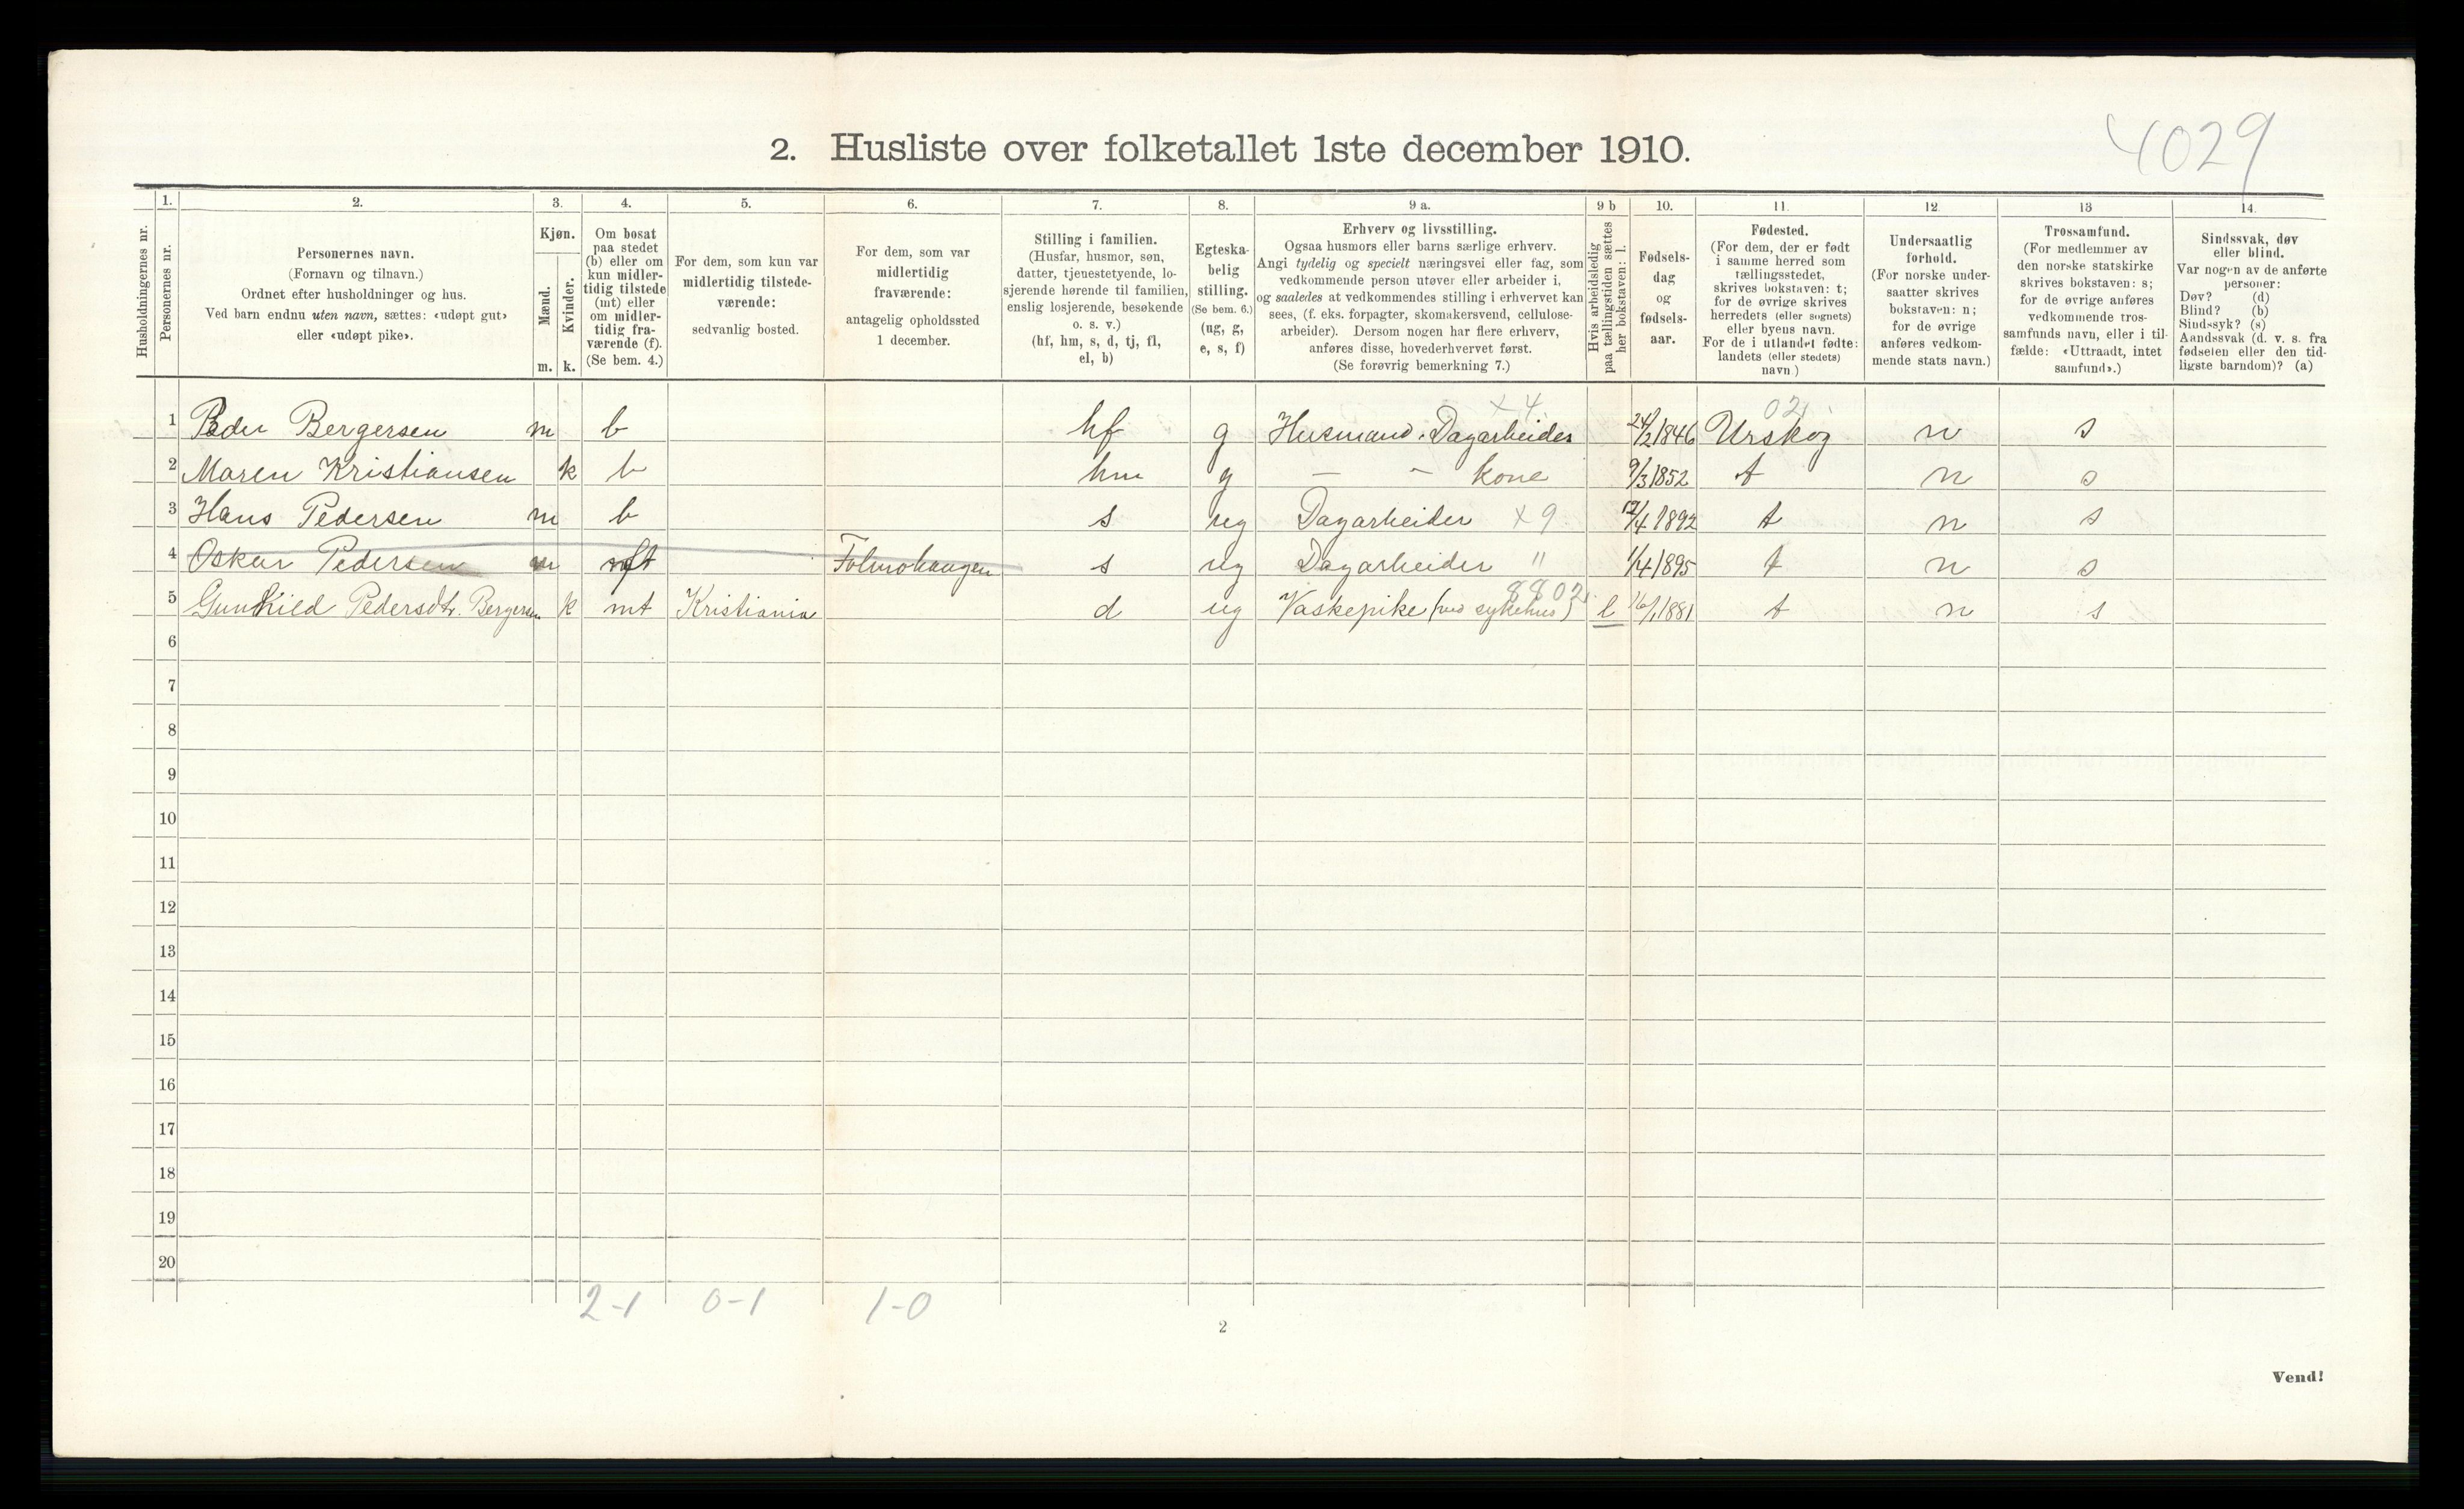 4029
2. Husliste over folketallet 1ste december 1910.
Husholdningernes nr.
1. Personernes nr.
2. Personernes navn. (Fornavn og tilnavn.) Ordnet efter husholdninger og hus. Ved barn endnu uten navn, sættes: «udøpt gut» eller «udøpt pike».
3. Kjøn. Mænd. m. Kvinder. k.
4. Om bosat paa stedet (b) eller om kun midlertidig tilstede (mt) eller om midlertidig fraværende (f). (Se bem. 4.)
5. For dem, som kun var midlertidig tilstedeværende: sedvanlig bosted.
6. For dem, som var midlertidig fraværende: antagelig opholdssted 1 december.
7. Stilling i familien. (Husfar, husmor, søn, datter, tjenestetyende, losjerende hørende til familien, enslig losjerende, besøkende o. s. v.) (hf, hm, s, d, tj, fl, el, b)
8. Egteskabelig stilling. (Se bem. 6.) (ug, g, e, s, f)
9 a. Erhverv og livsstilling. Ogsaa husmors eller barns særlige erhverv. Angi tydelig og specielt næringsvei eller fag, som vedkommende person utøver eller arbeider i, og saaledes at vedkommendes stilling i erhvervet kan sees, (f. eks. forpagter, skomakersvend, cellulosearbeider). Dersom nogen har flere erhverv, anføres disse, hovederhvervet først. (Se forøvrig bemerkning 7.)
9 b Hvis arbeidsledig paa tællingstiden sættes her bokstaven: l.
10. Fødselsdag og fødselsaar.
11. Fødested. (For dem, der er født i samme herred som tællingsstedet, skrives bokstaven: t; for de øvrige skrives herredets (eller sognets) eller byens navn. For de i utlandet fødte: landets (eller stedets) navn.)
12. Undersaatlig forhold. (For norske undersaatter skrives bokstaven: n; for de øvrige anføres vedkommende stats navn.)
13 Trossamfund. (For medlemmer av den norske statskirke skrives bokstaven: s; for de øvrige anføres vedkommende trossamfunds navn, eller i tilfælde: «Uttraadt, intet samfund».)
14. Sindssvak, døv eller blind. Var nogen av de anførte personer: Døv? (d) Blind? (b) Sindssyk? (s) Aandssvak (d. v. s. fra fødselen eller den tidligste barndom)? (a)
x 4 02
1 Peder Bergersen m b hf g Husmand. Dagarbeider 24/2 1846 Urskog n s
2 Maren Kristiansen k b hm g — - kone 9/3 1852 t n s
3 Hans Pedersen m b s ug Dagarbeider x 9 12/4 1892 t n s
4 Oskar Pedersen m f Folmohaugen s ug Dagarbeider " 1/4 1895 t n s
8802
5 Gunhild Pedersdtr. Bergersen k mt Kristiania d ug Vaskepike (ved sykehus) l 16/1 1881 t n s
6
7
8
9
10
11
12
13
14
15
16
17
18
19
20
2-1 0-1 1-0
2
Vend!